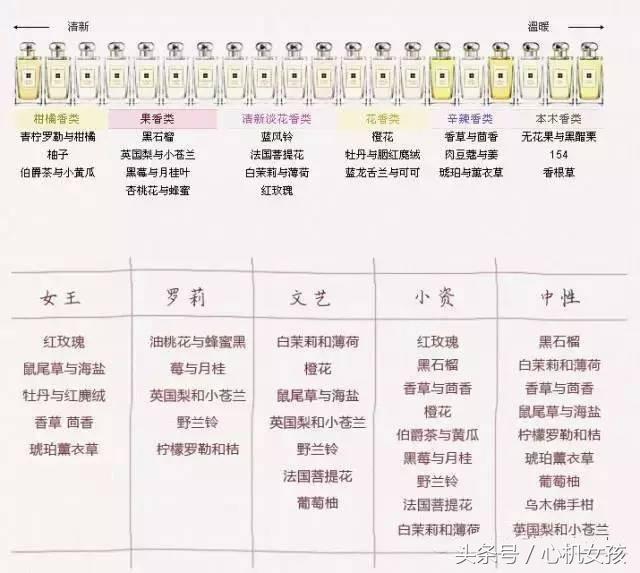 清新
温暖
柑橘香类
青柠罗勒与柑橘
柚子
伯爵茶与小黄瓜
果香类
黑石榴
英国梨与小苍兰
黑莓与月桂叶
杏桃花与蜂蜜
清新淡花香类
蓝风铃
法国菩提花
白茉莉与薄荷
红玫瑰
花香类
橙花
牡丹与胭红麂绒
蓝龙舌兰与可可
辛辣香类
香草与茴香
肉豆蔻与姜
琥珀与薰衣草
本木香类
无花果与黑醋栗
154
香根草
女王
红玫瑰
鼠尾草与海盐
牡丹与红麂绒
香草 茴香
琥珀薰衣草
罗莉
油桃花与蜂蜜黑
莓与月桂
英国梨和小苍兰
野兰铃
柠檬罗勒和桔
文艺
白茉莉和薄荷
橙花
鼠尾草与海盐
英国梨和小苍兰
野兰铃
法国菩提花
葡萄柚
小资
红玫瑰
黑石榴
香草与茴香
橙花
伯爵茶与黄瓜
黑莓与月桂
野兰铃
法国菩提花
白茉莉和薄荷
中性
黑石榴
白茉莉和薄荷
香草与茴香
鼠尾草与海盐
柠檬罗勒和桔
琥珀薰衣草
葡萄柚
乌木佛手柑
英国梨和小苍兰
头条号 / 心机女孩